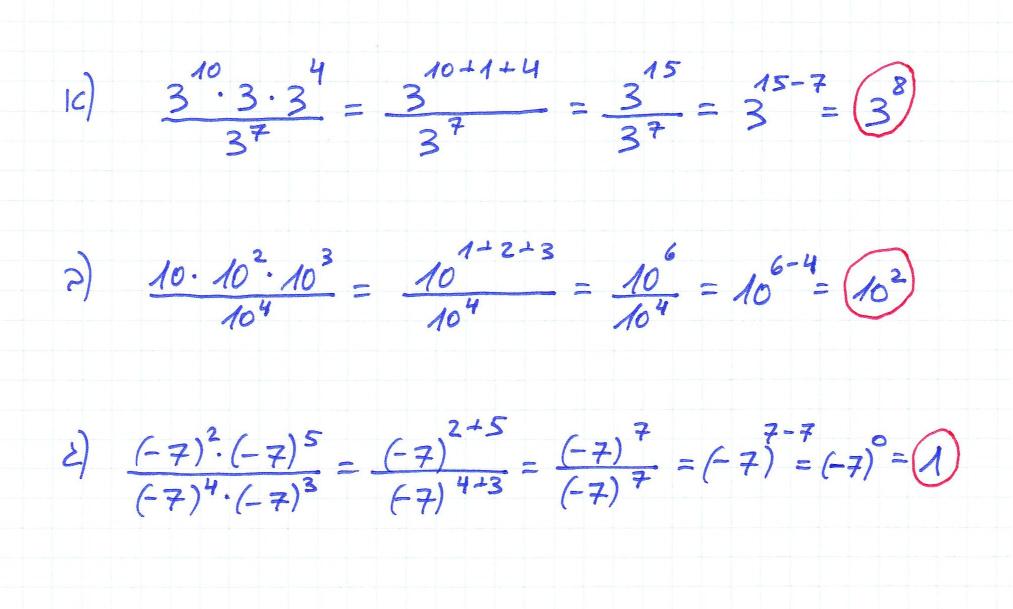 א) (3^10 · 3 · 3^4)/(3^7) = (3^(10+1+4))/(3^7) = (3^15)/(3^7) = 3^(15-7) = 3^8
ב) (10 · 10^2 · 10^3)/(10^4) = (10^(1+2+3))/(10^4) = (10^6)/(10^4) = 10^(6-4) = 10^2
ג) ((-7)^2 · (-7)^5)/((-7)^4 · (-7)^3) = ((-7)^(2+5))/((-7)^(4+3)) = ((-7)^7)/((-7)^7) = (-7)^(7-7) = (-7)^0 = 1